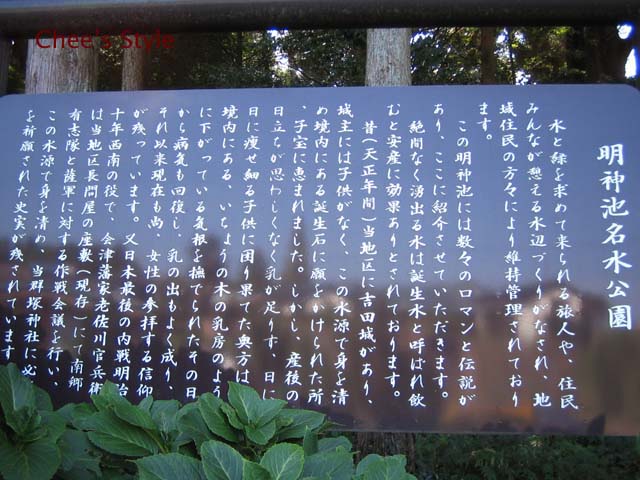 Chee's Style
明神池名水公園
水と緑を求めて来られる旅人や、住民
みんなが憩える水辺づくりがなされ、地
域住民の方々により維持管理されており
ます。
この明神池には数々のロマンと伝説が
あり、ここに紹介させていただきます。
絶間なく湧出る水は誕生水と呼ばれ飲
むと安産に効果ありとされております。
昔(天正年間)当地区に吉田城があり、
城主には子供がなく、この水源で身を清
め境内にある誕生石に願をかけられた所
、子宝に恵まれました。しかし、産後の
日立ちが思わしくなく乳が足りず、日に
日に痩せ細る子供に困り果てた奥方は、
境内にある、いちょうの木の乳房のよう
に下がっている気根を撫でられたその日
から病気も回復し、乳の出もよく成り、
それ以来現在も尚、女性の参拝する信仰
が残っています。又日本最後の内戦明治
十年西南の役で、会津藩家老佐川官兵衛
は当地区長問屋の座敷(現存)にて南郷
有志隊と薩軍に対する作戦会議を行い、
この水源で身を清め、当群塚神社に必
を祈願された史実が残されています